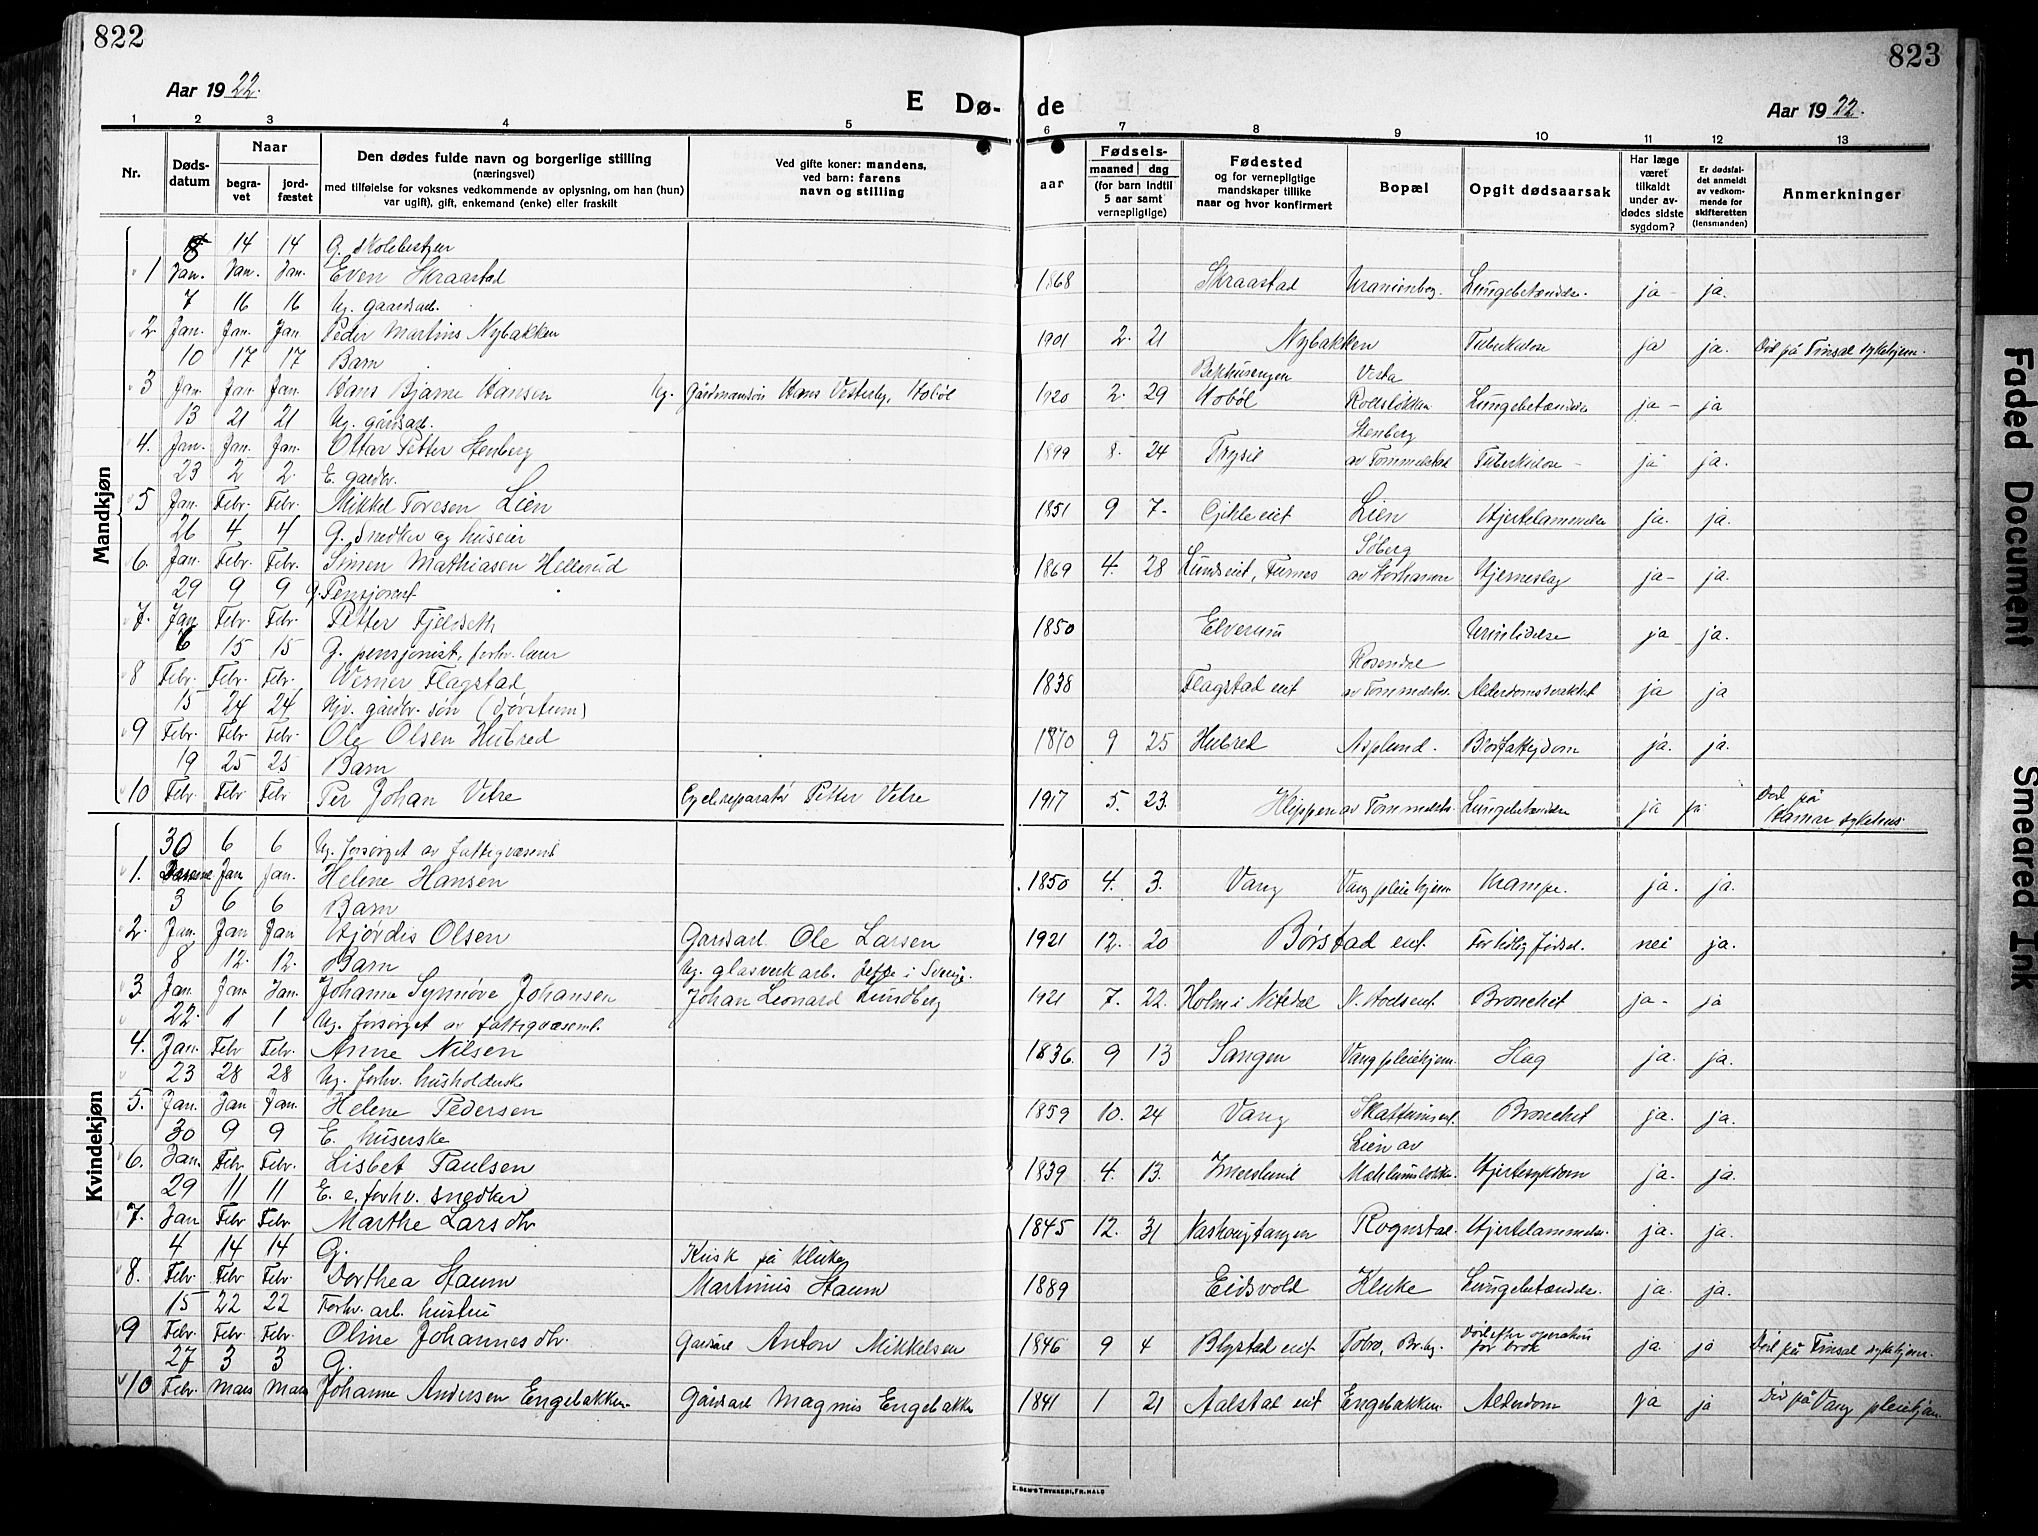 822
823
Aar 1922.
E Dø-
de
Aar 1922.
1 2 3 4 5 6 7 8 9 10 11 12 13
Nr.
Døds-
datum
Naar
begra-
vet
jord-
fæstet
Den dødes fulde navn og borgerlige stilling
(næringsvei)
med tilføielse for voksnes vedkommende av oplysning, om han (hun)
var ugift), gift, enkemand (enke) eller fraskilt
Ved gifte koner: mandens,
ved barn: farens
navn og stilling
aar
Fødsels-
maaned dag
(for barn indtil
5 aar samt
vernepligtige)
Fødested
og for vernepligtige
mandskaper tillike
naar og hvor konfirmert
Bopæl
Opgit dødsaarsak
Har læge
været
tilkaldt
under av-
dødes sidste
sygdom?
Er dødsfal-
det anmeldt
av vedkom-
mende for
skifteretten
(lensmanden)
Anmerkninger
Mandkjøn
8 14 14 G. skolebestyrer
1 Jan. Jan. Jan. Even Skraastad 1868 Skraastad Uranienbg. Lungebetændelse. ja ja.
7 16 16 Ug. gaardsarb.
2. Jan. Jan. Jan Peder Martins Nybakken 1901 2. 21 Nybakken Tuberkulose ja ja. Död på Finsal sykehjem.
10 17 17 Barn
3 Jan. Jan. Jan. Hans Bjarne Hansen Ug. Gårdmandssön Hans Vesterby, Hobøl 1920 2. 29 Hobøl Lungebetændelse ja ja
13 21 21 Ug. gårdsarb.
4. Jan. Jan. Jan. Ottar Petter Stenberg 1899 8. 24 Trysil Stenberg av Tommelstad Tuberkulose ja ja.
23 2 2. E. gardbr.
5 Jan. Febr. Febr. Mikkel Toresen Lien 1851 9 7. Gihle eiet Lien Hjertelammelse ja. ja.
26 4 4 G. snedker og huseier
6. Jan. Febr. Febr. Simen Mathiasen Hellerud 1869 4. 28 Lunds eiet, Furnes Søberg av Storhamar Hjerneslag ja ja.
29 9 9 G. Pensjonist
7. Jan Febr. Febr. Petter Fjeldseth 1850 Elverum Urinlidelse ja ja.
6 15 15 G. pensjonist, forhv. lærer
8 Febr. Febr. Febr. Werner Flagstad 1838 Flagstad eiet Rosendal av Tommelst. Alderdomssvakhet ja ja
15 24 24 Ug. gardbr. søn (døvstum)
9 Febr. Febr. Febr. Ole Olsen Hubred 1870 9 25 Hubred Asplund. Blodfattigdom ja. ja.
19 25 25 Barn
10 Febr. Febr Febr Per Johan Vetre Cyclereparatör Petter Vetre 1917 5. 23. Kleppen av Tommelst. Lungebetændelse ja ja Död på Hamar sykehus
Kvindekjøn
30 6 6 Ug. forsørget av fattigvæsenet
1. Jan Jan. Helene Hansen 1850 4. 3. Vang Vang pleiehjem Krampe. ja. ja.
3 6 6 Barn
2. Jan. Jan Jan Hjördis Olsen Gardsarb. Ole Larsen 1921 12. 20 Börstad eiet. For tidlig födsel. nei ja.
8 12. 12. Barn Ug. glasverkarb.
3. Jan. Jan Jan. Johanne Synnøve Johansen Johan Leonard Lundberg 1921 7. 22. Holm i Nitedal Bronchit ja ja
22. 1 1 Ug. forsørget av fattigvæsenet.
4. Jan. Febr Febr. Anne Nilsen 1836. 9 13 Sangen Vang pleiehjem. Slag ja. ja.
23 28 28 Ug. forhv. husholderske
5. Jan. Jan Jan. Helene Pedersen 1859 10. 24 Vang Skattumseiet. Bronchit ja. ja.
30 9 9 E. huserske
6. Jan. Febr. Febr. Lisbet Paulsen 1839 4. 13. Imerslund Lien av Mæhlumsløkke. Hjertesykdom ja. ja.
29 11 11 E. e. forhv. snedker
7. Jan Febr Febr. Marthe Larsdtr 1845 12. 31 Naskougtangen Rognstad. Hjertelammelse. ja. ja.
4 14 14 G. Kusk på Kluke
8. Febr. Febr. Febr. Dorthea Staum Martinius Staum 1889 Eidsvold Kluke Lungebetændelse. ja. ja.
15 22 22 Forhv. arb. hustru
9 Febr. Febr. Febr. Oline Johannesdtr. Gardsarb. Anton Mikkelsen 1846 9 4 Blystad eiet Död efter operation for brok ja ja Död på Finsal sykehjem.
27 3 3 G.
10 Febr. Mars Mars Johanne Andersen Engebakken. Gårdsarb Magnus Engebakken 1841 1 21 Aalstad eiet Engebakken. Alderdom ja ja Död på Vang pleiehjem.
E. SEM'S TRYKKERI, FR. HALD
Faded Document
Smeared Ink